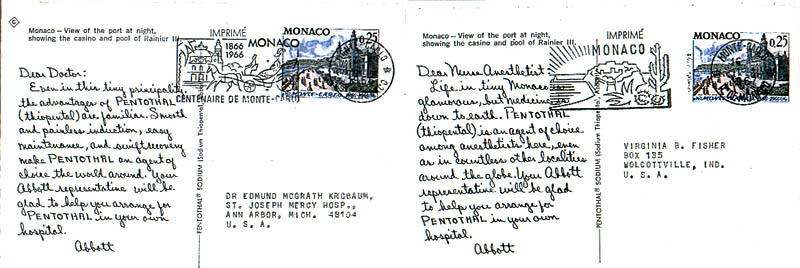 ©
Monaco — View of the port at night,
showing the casino and pool of Rainier III.
IMPRIMÉ
1866
1966
MONACO
CENTENAIRE DE MONTE-CARLO
MONACO
0,25
Dear Doctor:
Even in this tiny principality,
the advantages of PENTOTHAL
(thiopental) are familiar. Smooth
and painless induction, easy
maintenance, and swift recovery
make PENTOTHAL an agent of
choice the world around. Your
Abbott representative will be
glad to help you arrange for
PENTOTHAL in your own
hospital.
Abbott
PENTOTHAL® SODIUM (Sodium Thiopental
DR EDMUND MCGRATH KROBAUM,
ST. JOSEPH MERCY HOSP.,
ANN ARBOR, MICH. 48104
U. S. A.
Monaco — View of the port at night,
showing the casino and pool of Rainier III.
IMPRIMÉ
MONACO
MONACO
0,25
Dear Nurse Anesthetist:
Life in tiny Monaco is
glamorous, but medicine is
down to earth. PENTOTHAL
(thiopental) is an agent of choice
among anesthetists here, even
as in countless other localities
around the globe. Your Abbott
representative will be glad
to help you arrange for
PENTOTHAL in your own
hospital.
Abbott
PENTOTHAL® SODIUM (Sodium Thiopental
VIRGINIA B. FISHER
BOX 135
WOLCOTTVILLE, IND.
U. S. A.